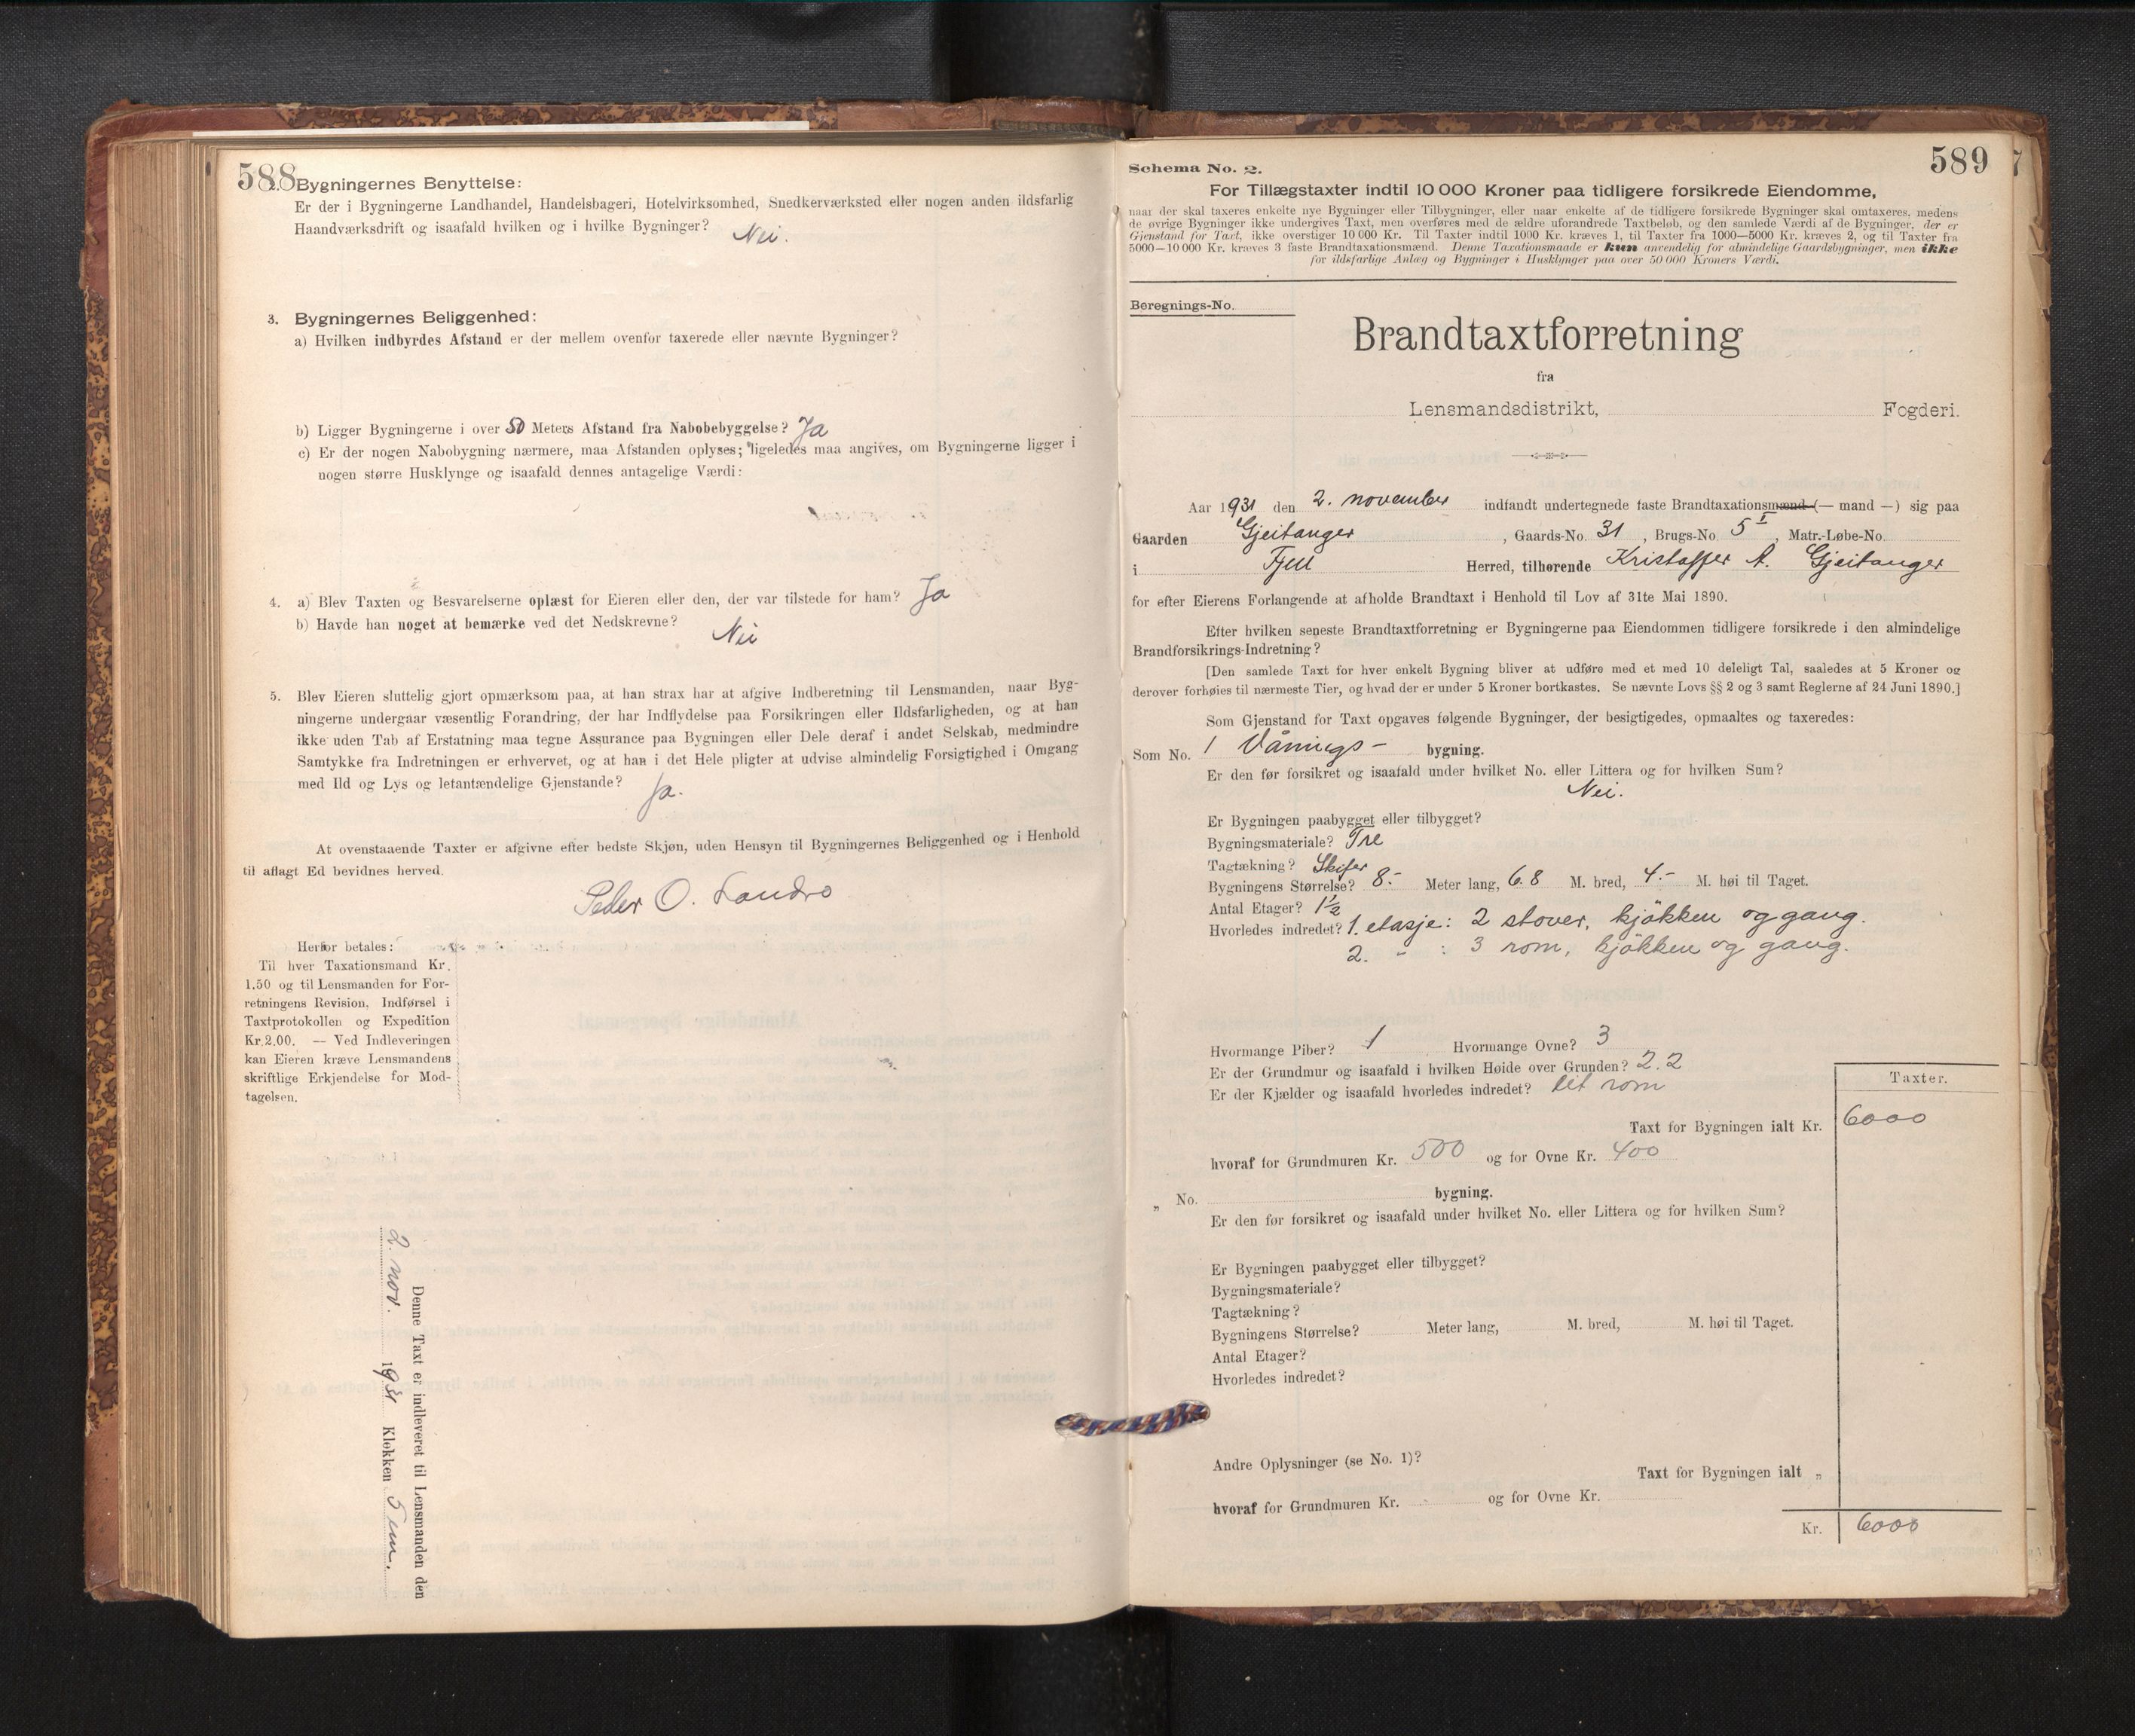 588
2. Bygningernes Benyttelse:
Er der i Bygningerne Landhandel, Handelsbageri, Hotelvirksomhed, Snedkerværksted eller nogen anden ildsfarlig
Haandværksdrift og isaafald hvilken og i hvilke Bygninger? Nei.
3. Bygningernes Beliggenhed:
a) Hvilken indbyrdes Afstand er der mellem ovenfor taxerede eller nævnte Bygninger?
b) Ligger Bygningerne i over 50 Meters Afstand fra Nabobebyggelse? Ja
c) Er der nogen Nabobygning nærmere, maa Afstanden oplyses; ligeledes maa angives, om Bygningerne ligger i
nogen større Husklynge og isaafald dennes antagelige Værdi:
4. a) Blev Taxten og Besvarelserne oplæst for Eieren eller den, der var tilstede for ham? Ja
b) Havde han noget at bemærke ved det Nedskrevne? Nei
5. Blev Eieren sluttelig gjort opmærksom paa, at han strax har at afgive Indberetning til Lensmanden, naar Byg-
ningerne undergaar væsentlig Forandring, der har Indflydelse paa Forsikringen eller Ildsfarligheden, og at han
ikke uden Tab af Erstatning maa tegne Assurance paa Bygningen eller Dele deraf i andet Selskab, medmindre
Samtykke fra Indretningen er erhvervet, og at han i det Hele pligter at udvise almindelig Forsigtighed i Omgang
med Ild og Lys og letantændelige Gjenstande? Ja.
At ovenstaaende Taxter er afgivne efter bedste Skjøn, uden Hensyn til Bygningernes Beliggenhed og i Henhold
til aflagt Ed bevidnes herved.
Peder O. Landro
Herfor betales:
Til hver Taxationsmand Kr.
1.50 og til Lensmanden for For-
retningens Revision, Indførsel i
Taxtprotokollen og Expedition
Kr. 2.00. — Ved Indleveringen
kan Eieren kræve Lensmandens
skriftlige Erkjendelse for Mod-
tagelsen.
Denne Taxt er indleveret til Lensmanden den
2. nov. 1931 Klokken 5 em.
589
Schema No. 2.
For Tillægstaxter indtil 10 000 Kroner paa tidligere forsikrede Eiendomme,
naar der skal taxeres enkelte nye Bygninger eller Tilbygninger, eller naar enkelte af de tidligere forsikrede Bygninger skal omtaxeres, medens
de øvrige Bygninger ikke undergives Taxt, men overføres med de ældre uforandrede Taxtbeløb, og den samlede Værdi af de Bygninger, der er
Gjenstand for Taxt, ikke overstiger 10 000 Kr. Til Taxter indtil 1000 Kr. kræves 1, til Taxter fra 1000—5000 Kr. kræves 2, og til Taxter fra
5000—10 000 Kr. kræves 3 faste Brandtaxationsmænd. Denne Taxationsmaade er kun anvendelig for almindelige Gaardsbygninger, men ikke
for ildsfarlige Anlæg og Bygninger i Husklynger paa over 50 000 Kroners Værdi.
Beregnings-No.
Brandtaxtforretning
fra
Lensmandsdistrikt, Fogderi.
Aar 1931 den 2. november indfandt undertegnede faste Brandtaxationsmænd (— mand —) sig paa
Gaarden Gjeitanger, Gaards-No. 31, Brugs-No. 5 I, Matr.-Løbe-No.
i Fjell Herred, tilhørende Kristoffer A. Gjeitanger
for efter Eierens Forlangende at afholde Brandtaxt i Henhold til Lov af 31te Mai 1890.
Efter hvilken seneste Brandtaxtforretning er Bygningerne paa Eiendommen tidligere forsikrede i den almindelige
Brandforsikrings-Indretning?
[Den samlede Taxt for hver enkelt Bygning bliver at udføre med et med 10 deleligt Tal, saaledes at 5 Kroner og
derover forhøies til nærmeste Tier, og hvad der er under 5 Kroner bortkastes. Se nævnte Lovs §§ 2 og 3 samt Reglerne af 24 Juni 1890.]
Som Gjenstand for Taxt opgaves følgende Bygninger, der besigtigedes, opmaaltes og taxeredes:
Som No. 1 Vånings- bygning.
Er den før forsikret og isaafald under hvilket No. eller Littera og for hvilken Sum?
Nei.
Er Bygningen paabygget eller tilbygget?
Bygningsmateriale? Tre
Tagtækning? Skifer
Bygningens Størrelse? 8.- Meter lang, 6.8 M. bred, 4.- M. høi til Taget.
Antal Etager? 1½
Hvorledes indredet? 1. etasje: 2 stover, kjökken og gang.
2. " : 3 rom, kjökken og gang.
Hvormange Piber? 1 Hvormange Ovne? 3
Er der Grundmur og isaafald i hvilken Høide over Grunden? 2.2
Er der Kjælder og isaafald hvorledes indredet? eit rom
Taxter.
Taxt for Bygningen ialt Kr. 6000
hvoraf for Grundmuren Kr. 500 og for Ovne Kr. 400
„ No. bygning.
Er den før forsikret og isaafald under hvilket No. eller Littera og for hvilken Sum?
Er Bygningen paabygget eller tilbygget?
Bygningsmateriale?
Tagtækning?
Bygningens Størrelse? Meter lang, M. bred, M. høi til Taget.
Antal Etager?
Hvorledes indredet?
Andre Oplysninger (se No. 1)?
Taxt for Bygningen ialt „
hvoraf for Grundmuren Kr. og for Ovne Kr.
Kr. 6000